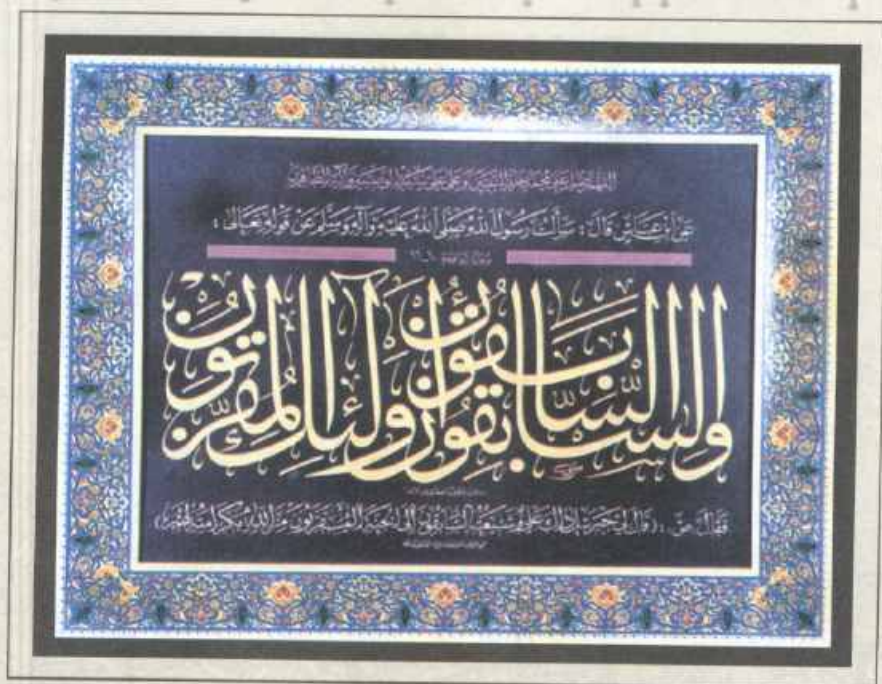 اللهم صل على محمد خاتم النبيين وعلى علي سيد الوصيين وآله الطاهرين
عن ابن عباس قال: سألت رسول الله صلى الله عليه وآله وسلم عن قوله تعالى:
والسابقون السابقون أولئك المقربون
فقال ص: (قال لي جبرئيل ذاك علي وشيعته هم السابقون إلى الجنة المقربون من الله بكرامته لهم)